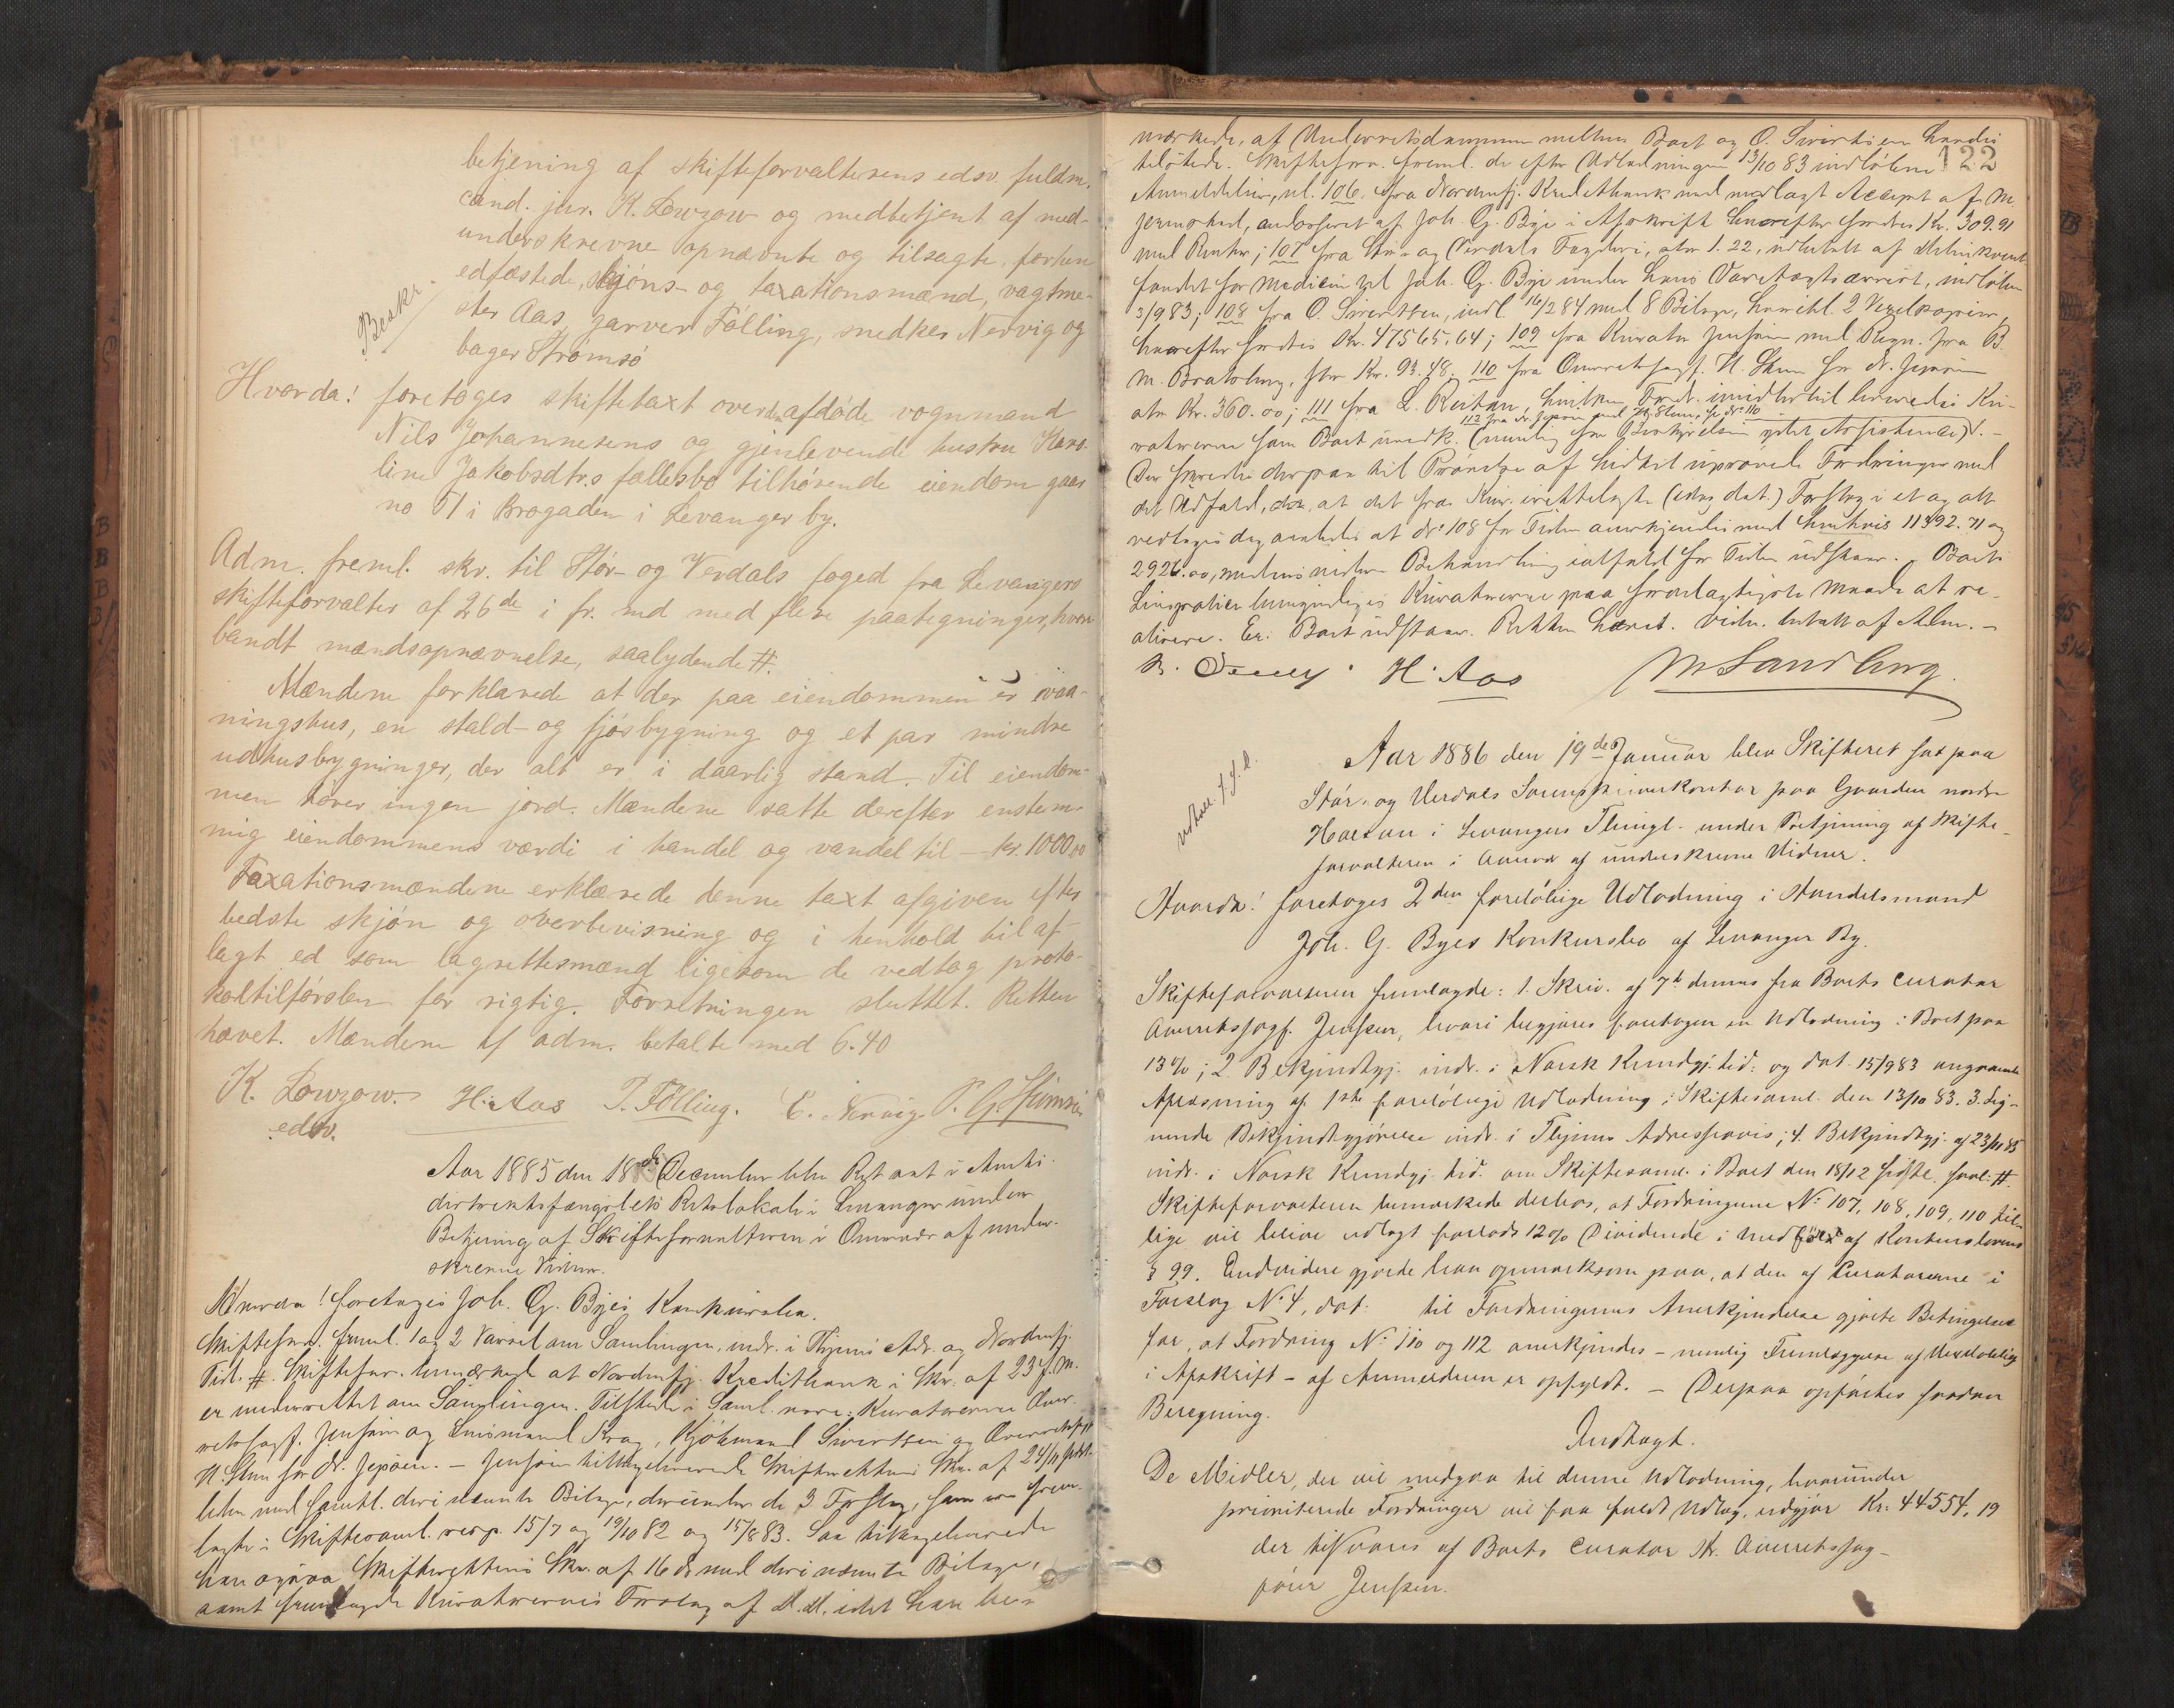 betjening af skifteforvalterens edsv. fuldm.
cand. jur. K. Lowzow og medbetjent af med-
underskrevne opnævnte og tilsagte, forhen
edfæstede, skjöns- og taxationsmænd, vagtme-
ster Aas, garver Fölling, snedker Nervig og
bager Strömsö
Beskr.
Hvorda! foretoges skiftetaxt over den afdöde vognmand
Nils Johannesens og gjenlevende hustru Karo-
line Jakobsdtr.s fællesbo tilhörende eiendom gaar
no 71 i Brogaden i Levanger by.
Adm. freml. skr. til Stör- og Verdals foged fra Levangers
skifteforvalter af 26de i fr. md med flere paategninger, hvori
bandt mændsopnævnelse, saalydende #.
Mændene forklarede at der paa eiendommen er vaa-
ningshus, en stald- og fjösbygning og et par mindre
udhusbygninger, der alt er i daarlig stand. Til eiendom-
men hörer ingen jord. Mændene satte derefter enstem-
mig eiendommens værdi i handel og vandel til – kr. 1000,00
Taxationsmændene erklærede denne taxt afgiven efter
bedste skjön og overbevisning og i henhold til af-
lagt ed som lagrettesmænd ligesom de vedtog proto-
koltilförslen for rigtig. Forretningen sluttet. Retten
hævet. Mændene af adm. betalte med 6.40
K. Lowzow. H. Aas P. Fölling. E. Nervig P. G. Strömsö
edsv.
Aar 1885 den 18de December blev Ret sat i Amts-
distriktsfængslets Retslokale i Levanger under
Betjening af Skifteforvalteren i Overvær af under-
skrevne Vidner.
Hvorda! foretoges Joh. G. Byes Konkursbo.
Skifteforv. freml. 1 og 2 Varsel om Samlingen, indr. i Thjems Adr. og Nordenfj.
Tid. #. Skifteforv. bemærked at Nordenfj. Kreditbank i Skr. af 23 f. M.
er underrettet om Samlingen. Tilstede i Saml. vare: Kuratorerne Over-
retssagf. Jenssen og Lensmand Krag, Kjöbmand Sivertsen og Overretssagf.
H. Stun for N. Jepsen. – Jenssen tilbageleverede Skifterettens Skr. af 24/11 sidst-
leden med samtl. deri nævnte Bilage, derunder de 3 Forslag, som var frem-
lagte i Skiftesaml. resp. 15/7 og 19/10 82 og 15/8 83. Saa tilbageleverede
han ogsaa Skifterettens Skr. af 16 ds med deri nævnte Bilage,
samt fremlagde Kuratorernes Forslag af d. d. idet han be-
122
mærkede, af Underretsdommen mellem Boet og O. Sivertsen handes
tilstede. Skifteforv. freml. de efter Udlodningen 13/10 83 indlöbne
Anmeldelser, nl. 106 fra Nordenfj. Kreditbank med medlagt Accept af M.
Jermstad, endosseret af Joh. G. Bye i Afskrift hvorefter fordres Kr. 309.91
med Renter; 107 fra Stör- og Verdals Fogderi, stor 1.22, udbetalt af Delinkvent-
fondet for Medicin til Joh. G. Bye under hans Varetægtsarrest, indlöben
3/9 83; 108 fra O. Sivertsen, indl. 16/2 84 med 8 Bilage, hvoribl. 2 Vexelkopier,
hvorefter fordres Kr. 47565,64; 109 fra Kurator Jenssen med Regn. fra B.
M. Bratsberg, stor Kr. 93.48. 110 fra Overretssagf. H. Stun for N. Jepsen
stor Kr. 360.00; 111 fra L. Reitan, hvilken Fordr. imidlertid henvendes Ku-
112 fra N. Jepsen ved H. Stun, se No 110
ratorerne som Boet uvedk. (nemlig for Bestyrelsen ydet Assistence). –
Der skredes derpaa til Prövelse af hidtil uprövede Fordringer med
det Udfald, at det fra Kur. irettelagte (idag dat.) Forslag i et og alt
vedtoges dog saaledes at No 108 for Tiden anerkjendes med henhvis 11392.71 og
2926.00, medens videre Behandling ialfald for Tiden udstaar. Boets
bemyndiges Kuratorerne paa fordelagtigste Maade at re-
alisere. Er. Boet udstaar. Retten hævet. Vidn. betalt af Adm. –
H. Aas M Sandberg.
Aar 1886 den 19de Januar blev Skifteret sat paa
Stör- og Verdals Sorenskriverkontor paa Gaarden nordre
i Levangers Thingl. under Betjening af Skifte-
forvalteren i Overvær af underskrevne Vidner.
Hvorda! foretoges 2den foreløbige Udlodning i Handelsmand
Joh. G. Byes Konkursbo af Levanger By.
Skifteforvalteren fremlagde: 1. Skriv. af 7de dennes fra Boets Curator
Overretssagf. Jenssen, hvori begjæres foretagen en Udlodning i Boet paa
13%; 2. Bekjendtgj. indr. i Norsk Kundgj.tid. og dat. 15/9 83 angaaende
Aflæsning af 1ste foreløbige Udlodning i Skiftesaml. den 13/10 83. 3. Lig-
nende Bekjendtgjörelse indr. i Thjems Adresseavis; 4. Bekjendtgj. af 23/11 85
indr. i Norsk Kundgj. tid. om Skiftesaml. i Boet den 18/12 sidstl. saal: #.
Skifteforvalteren bemærkede derhos, at Fordringerne No 107, 108, 109, 110 tid-
lige vil blive udlagt forlods 12% Dividende i Medför af Konkurslovens
§ 99. Endvidere gjorde han opmærksom paa, at den af Curatorerne i
Forslag No 4, dat: til Fordringernes Anerkjendelse gjorte Betingelse
for, at Fordring No 110 og 112 anerkjendes – nemlig Fremlæggelse af
i Afskrift – af Anmelderen er opfyldt. – Derpaa opførtes saadan
Beregning.
Indtægt.
De Midler, der vil medgaa til denne Udlodning, hvorunder
prioriterede Fordringer vil faa fuldt Udlæg, udgjør Kr: 44554,19
der tilsvares af Boets Curator Hr. Overretssag-
fører Jenssen.